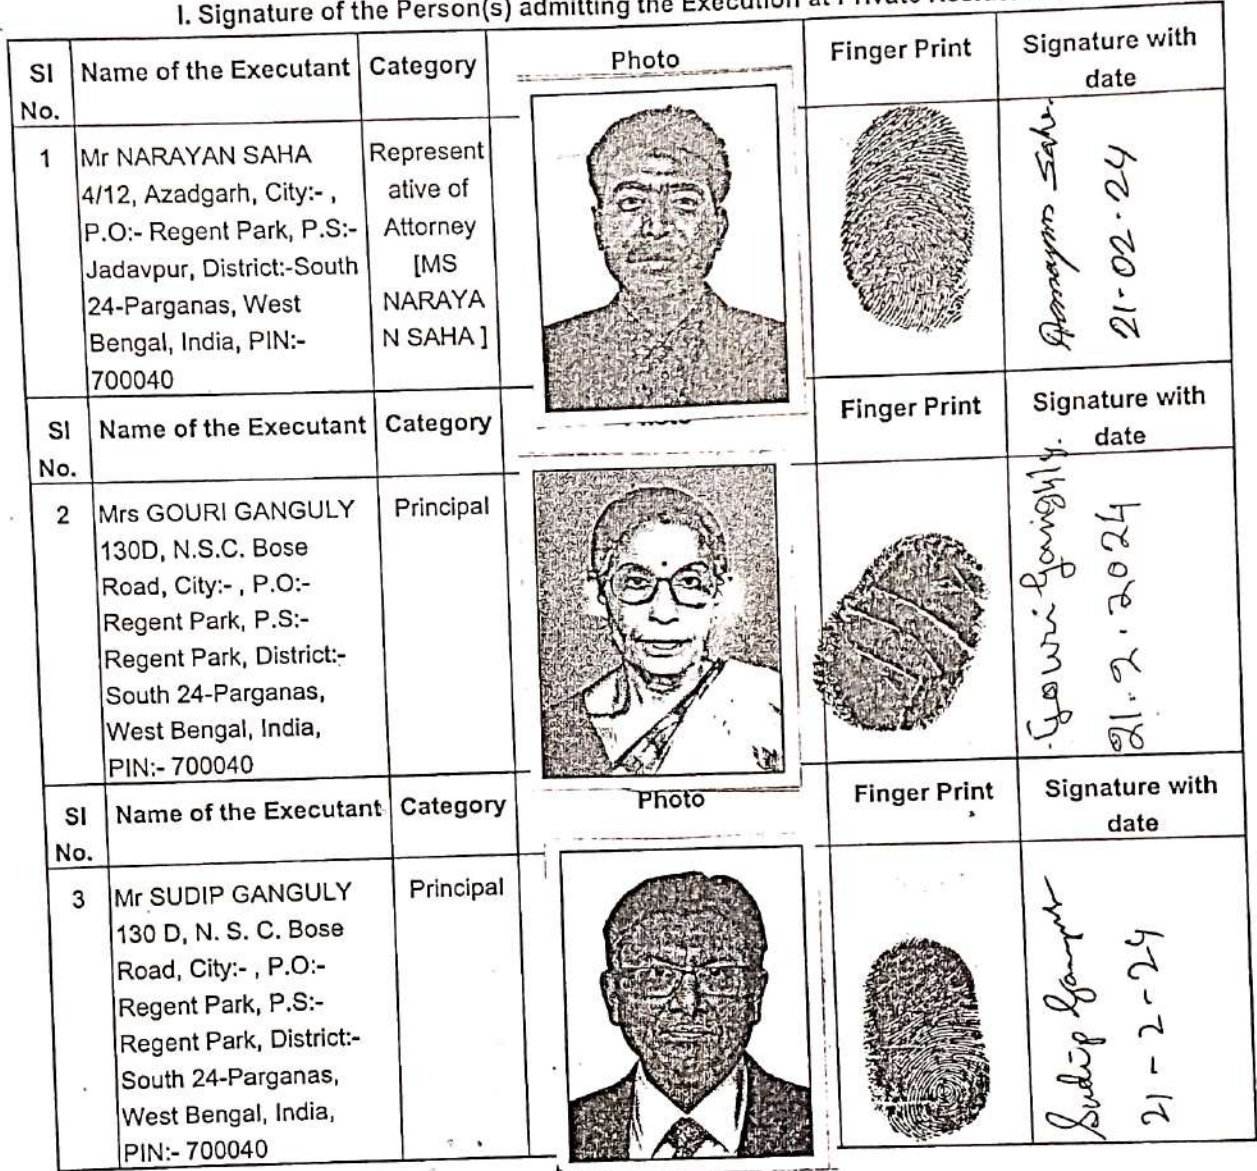 I. Signature of the Person(s) admitting the Execution at Private
Sl No. | Name of the Executant | Category | Photo | Finger Print | Signature with date
1
Mr NARAYAN SAHA
4/12, Azadgarh, City:- ,
P.O:- Regent Park, P.S:-
Jadavpur, District:-South
24-Parganas, West
Bengal, India, PIN:-
700040
Represent
ative of
Attorney
[MS
NARAYA
N SAHA ]
Narayan Saha
21-02-24
Sl No. | Name of the Executant | Category | Finger Print | Signature with date
2
Mrs GOURI GANGULY
130D, N.S.C. Bose
Road, City:- , P.O:-
Regent Park, P.S:-
Regent Park, District:-
South 24-Parganas,
West Bengal, India,
PIN:- 700040
Principal
Gouri Ganguly.
21.2.2024
Sl No. | Name of the Executant | Category | Photo | Finger Print | Signature with date
3
Mr SUDIP GANGULY
130 D, N. S. C. Bose
Road, City:- , P.O:-
Regent Park, P.S:-
Regent Park, District:-
South 24-Parganas,
West Bengal, India,
PIN:- 700040
Principal
Sudip
21-2-24